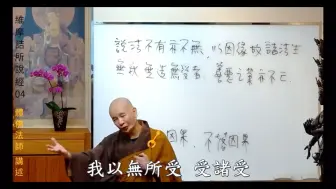 維摩詰所說經04
體信法師 講述
說法不有亦不無 以因緣故諸法生
無我無造無受者 善惡之業亦不亡
因果,不落因果
我以無所受 受諸受